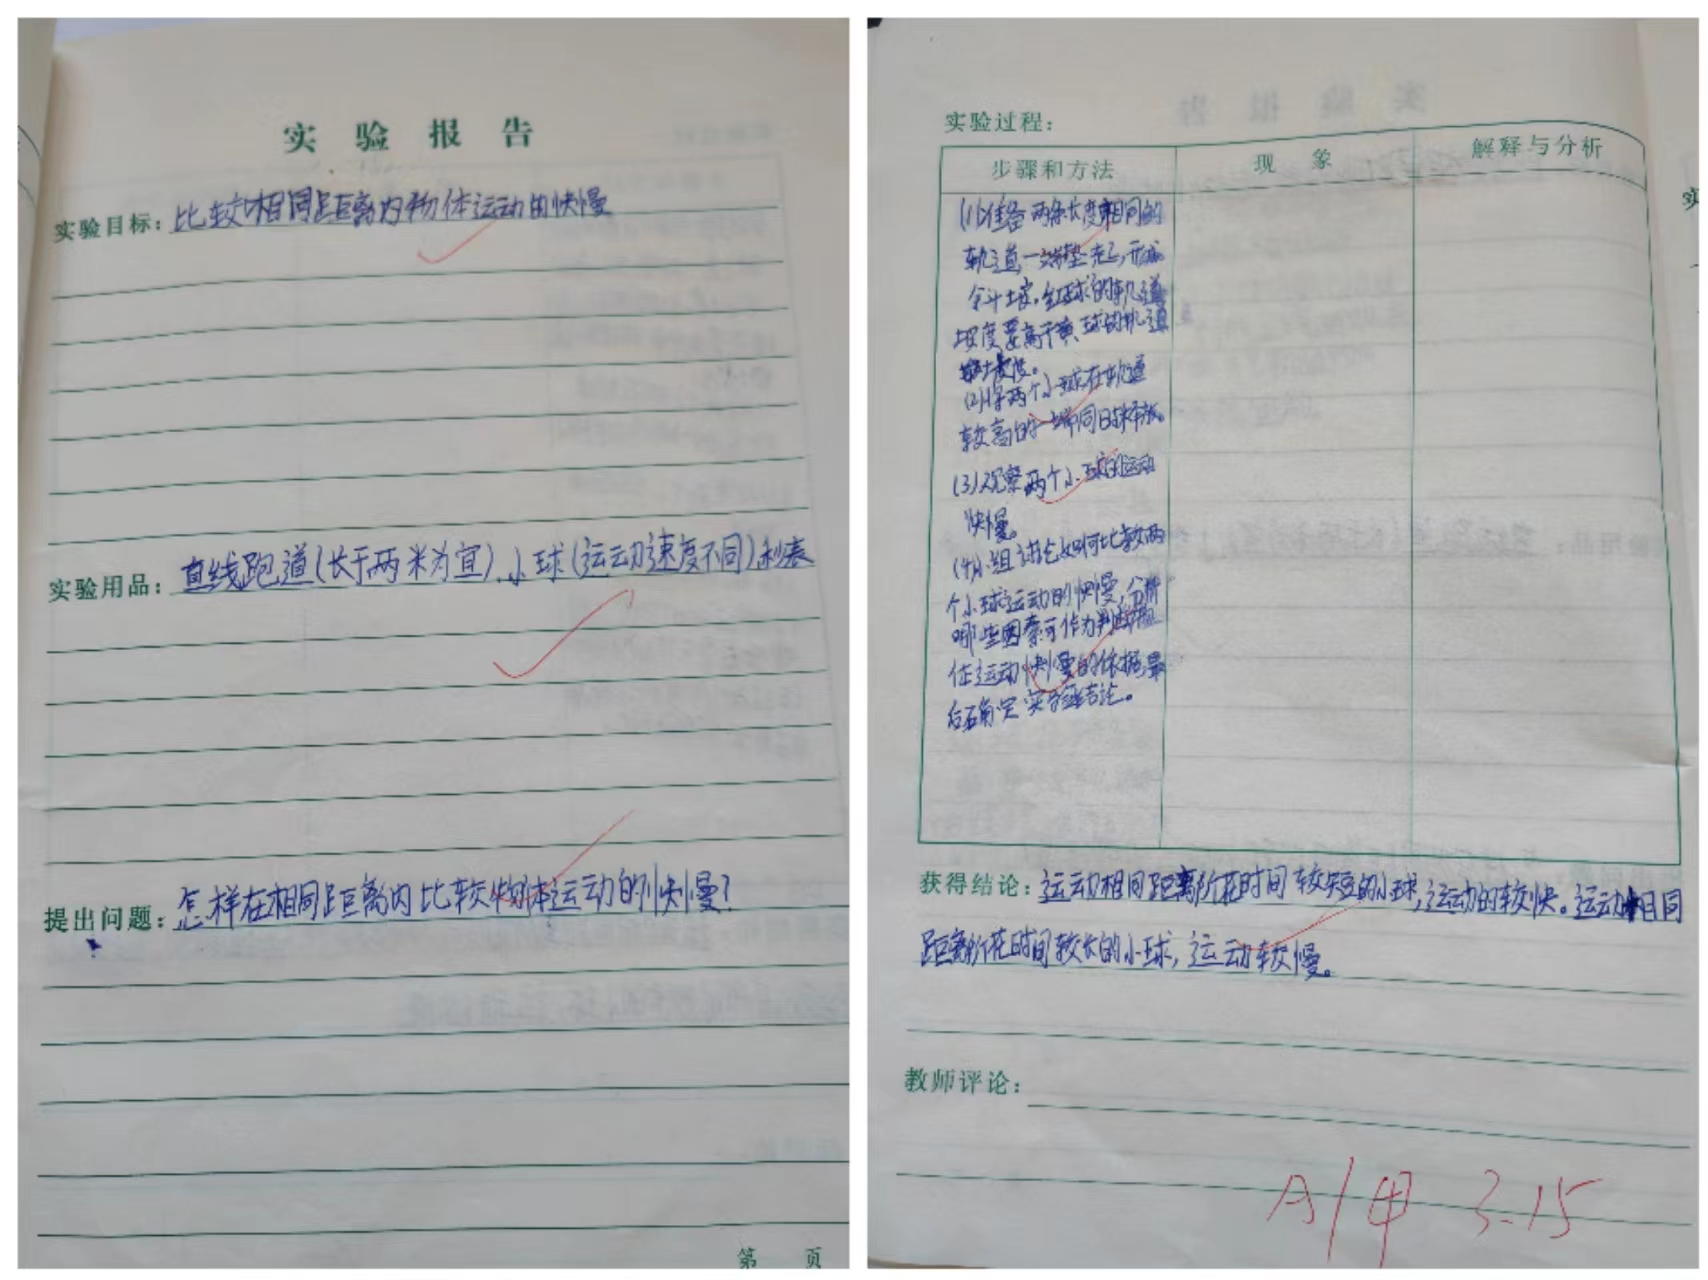 实验报告
实验目标：比较相同距离内物体运动的快慢
实验用品：直线跑道(长于两米为宜)、小球(运动速度不同)秒表
提出问题：怎样在相同距离内比较物体运动的快慢？
第 页
实验过程：
步骤和方法 现象 解释与分析
(1)准备两条长度相同的
轨道，一端垫起，形成
斜坡，红球的轨道
坡度要高于黄球的轨道
坡度。
(2)将两个小球在轨道
较高的一端同时释放。
(3)观察两个小球的运动
快慢。
(4)小组讨论如何比较两
个小球运动的快慢，分析
哪些因素可作为判断物
体运动快慢的依据，最
后确定实验结论。
获得结论：运动相同距离所花时间较短的小球，运动的较快。运动相同
距离所花时间较长的小球，运动较慢。
教师评论：
A/甲 3.15